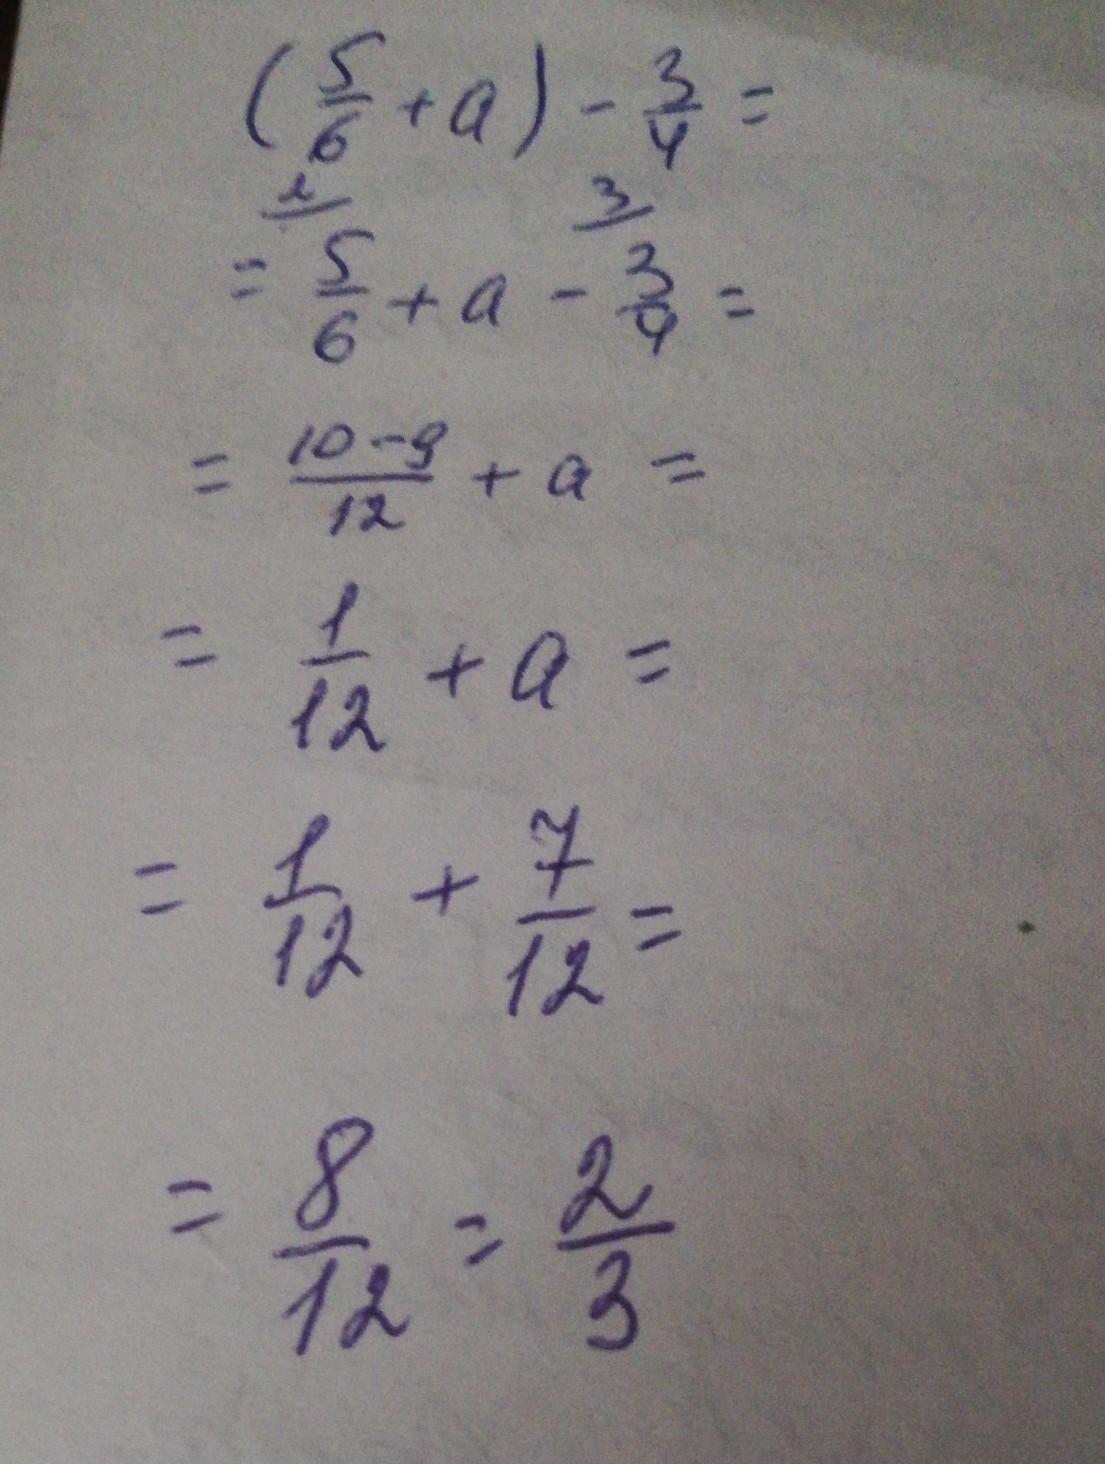 (5/6 + a) - 3/4 =
2/ 3/
= 5/6 + a - 3/4 =
= 10-9/12 + a =
= 1/12 + a =
= 1/12 + 7/12 =
= 8/12 = 2/3